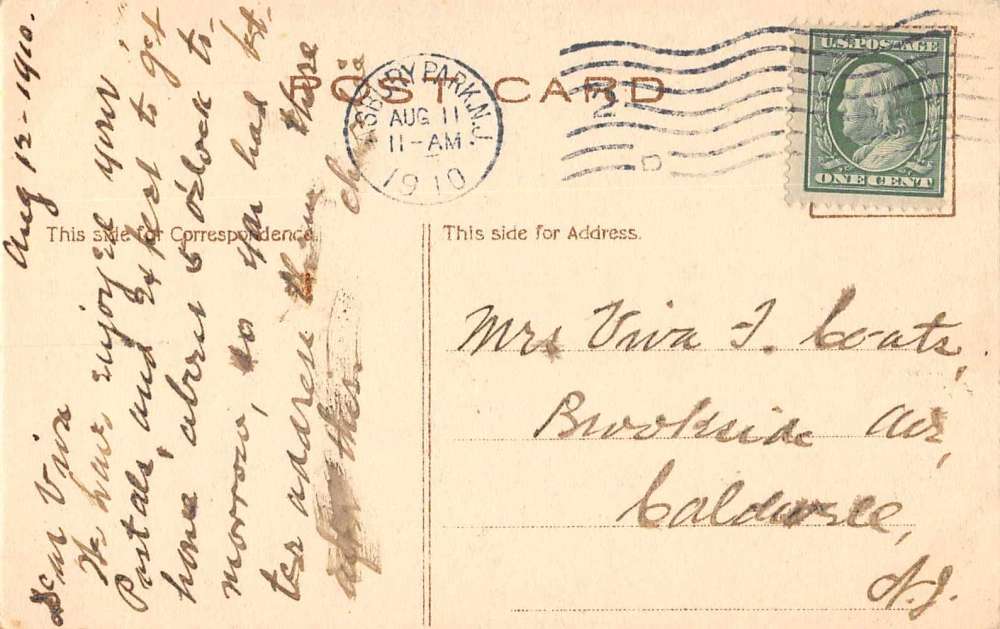 POST CARD
ASBURY PARK, N.J.
AUG 11
11-AM
1910
U.S. POSTAGE
ONE CENT
This side for Correspondence.
This side for Address.
Aug 12-1910.
Dear Viva
We have enjoyed your
Postals, and expect to get
home about 5 o'clock to-
morrow, so you had bet-
ter address them there
after this
Mrs Viva F. Coats,
Brookside Av,
Caldwell,
N.J.